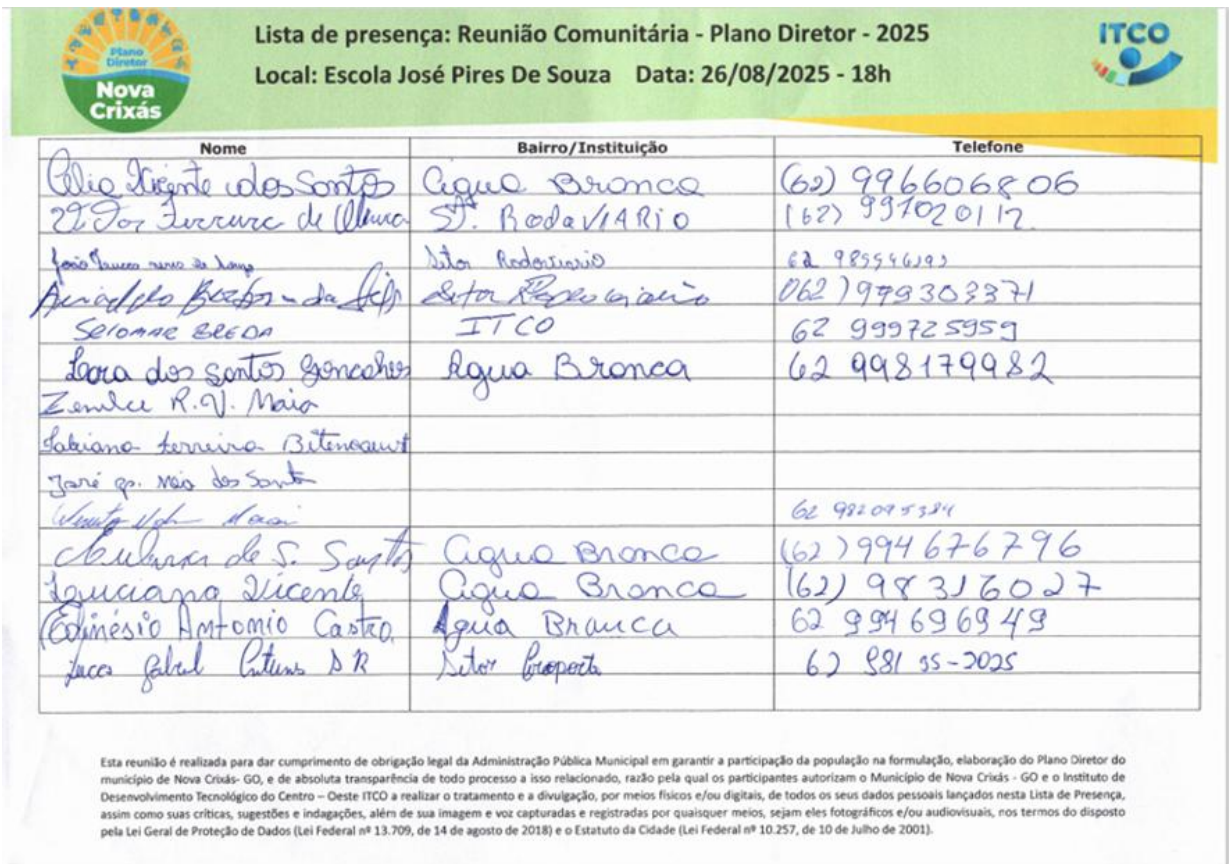 Lista de presença: Reunião Comunitária - Plano Diretor - 2025
Local: Escola José Pires De Souza Data: 26/08/2025 - 18h
Plano
Diretor
Nova
Crixás
ITCO
Nome Bairro/Instituição Telefone
Célia Vicente dos Santos Agua Branca (62) 996606806
Ferreira de S. RodaVIARiO (62) 991020112
João Setor Rodoviario 62
Barbosa da Setor 062) 979303371
SELOMAR BREDA ITCO 62 999725959
Lora dos santos Goncalves Agua Branca 62 998179982
Zenilce R.V. Maia
Fabiana ferreira Bitencourt
José dos Santos
62 982095384
de S. Santos agua Branca (62) 994676796
Luciana Vicente agua Branca (62) 98316027
Edinésio Antonio Castro Agua Branca 62 994696949
Lucas Gabriel Setor 62 981 35-2025
Esta reunião é realizada para dar cumprimento de obrigação legal da Administração Pública Municipal em garantir a participação da população na formulação, elaboração do Plano Diretor do
município de Nova Crixás- GO, e de absoluta transparência de todo processo a isso relacionado, razão pela qual os participantes autorizam o Município de Nova Crixás - GO e o Instituto de
Desenvolvimento Tecnológico do Centro – Oeste ITCO a realizar o tratamento e a divulgação, por meios físicos e/ou digitais, de todos os seus dados pessoais lançados nesta Lista de Presença,
assim como suas críticas, sugestões e indagações, além de sua imagem e voz capturadas e registradas por quaisquer meios, sejam eles fotográficos e/ou audiovisuais, nos termos do disposto
pela Lei Geral de Proteção de Dados (Lei Federal nº 13.709, de 14 de agosto de 2018) e o Estatuto da Cidade (Lei Federal nº 10.257, de 10 de Julho de 2001).